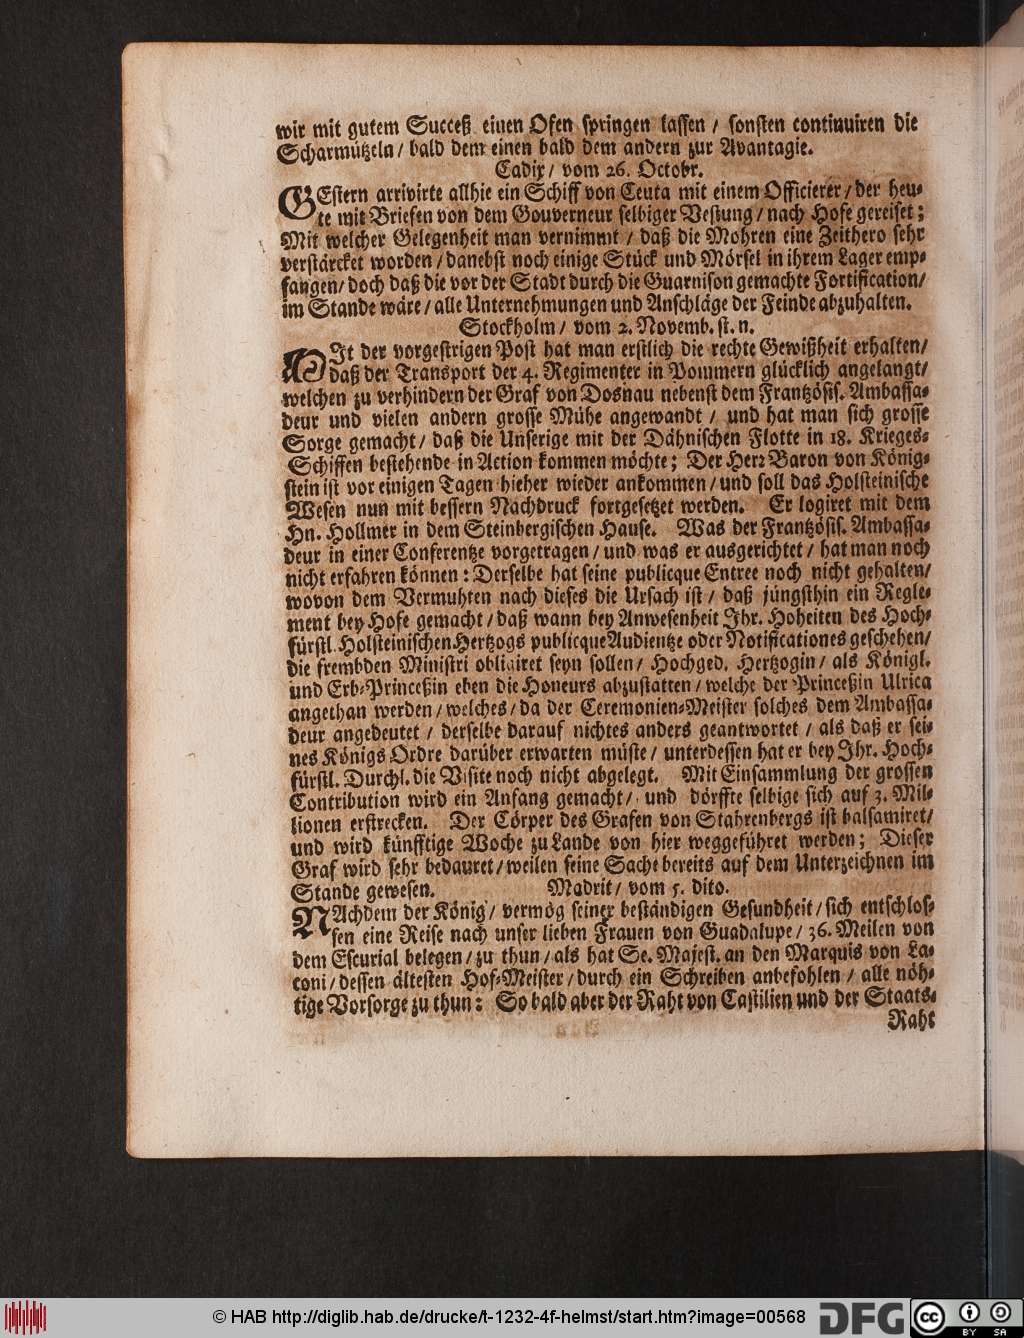 wir mit gutem Succeß einen Ofen springen lassen / sonsten continuiren die
Scharmützeln / bald dem einen bald dem andern zur Avantagie.
Cadix / vom 26. Octobr.
GEstern arrivirte allhie ein Schiff von Ceuta mit einem Officierer / der heu-
te mit Briefen von dem Gouverneur selbiger Vestung / nach Hofe gereiset;
Mit welcher Gelegenheit man vernimmt / daß die Mohren eine Zeithero sehr
verstärcket worden / danebst noch einige Stück und Mörsel in ihrem Lager emp-
fangen / doch daß die vor der Stadt durch die Guarnison gemachte Fortification /
im Stande wäre / alle Unternehmungen und Anschläge der Feinde abzuhalten.
Stockholm / vom 2. Novemb. st. n.
MIt der vorgestrigen Post hat man erstlich die rechte Gewißheit erhalten /
daß der Transport der 4. Regimenter in Pommern glücklich angelangt /
welchen zu verhindern der Graf von Dosnau nebenst dem Frantzösis. Ambassa-
deur und vielen andern grosse Mühe angewandt / und hat man sich grosse
Sorge gemacht / daß die Unserige mit der Dähnischen Flotte in 18. Krieges-
Schiffen bestehende in Action kommen möchte; Der Herr Baron von König-
stein ist vor einigen Tagen hieher wieder ankommen / und soll das Holsteinische
Wesen nun mit bessern Nachdruck fortgesetzet werden. Er logiret mit dem
Hn. Hollmer in dem Steinbergischen Hause. Was der Frantzösis. Ambassa-
deur in einer Conferentze vorgetragen / und was er ausgerichtet / hat man noch
nicht erfahren können: Derselbe hat seine publicque Entree noch nicht gehalten /
wovon dem Vermuhten nach dieses die Ursach ist / daß jüngsthin ein Regle-
ment bey Hofe gemacht / daß wann bey Anwesenheit Ihr. Hoheiten des Hoch-
fürstl. Holsteinischen Hertzogs publicque Audientze oder Notificationes geschehen /
die frembden Ministri obligiret seyn sollen / Hochged. Hertzogin / als Königl.
und Erb-Princeßin eben die Honeurs abzustatten / welche der Princeßin Ulrica
angethan werden / welches / da der Ceremonien-Meister solches dem Ambassa-
deur angedeutet / derselbe darauf nichtes anders geantwortet / als daß er sei-
nes Königs Ordre darüber erwarten müste / unterdessen hat er bey Ihr. Hoch-
fürstl. Durchl. die Visite noch nicht abgelegt. Mit Einsammlung der grossen
Contribution wird ein Anfang gemacht / und dörffte selbige sich auf 3. Mil-
lionen erstrecken. Der Cörper des Grafen von Stahrenbergs ist balsamiret /
und wird künfftige Woche zu Lande von hier weggeführet werden; Dieser
Graf wird sehr bedauret / weilen seine Sache bereits auf dem Unterzeichnen im
Stande gewesen. Madrit / vom 5. dito.
NAchdem der König / vermög seiner beständigen Gesundheit / sich entschlos-
sen eine Reise nach unser lieben Frauen von Guadalupe / 36. Meilen von
dem Escurial belegen / zu thun / als hat Se. Majest. an den Marquis von La-
coni / dessen ältesten Hof-Meister / durch ein Schreiben anbefohlen / alle nöh-
tige Vorsorge zu thun: So bald aber der Raht von Castilien und der Staats-
Raht
© HAB http://diglib.hab.de/drucke/t-1232-4f-helmst/start.htm?image=00568
DFG
cc
BY SA